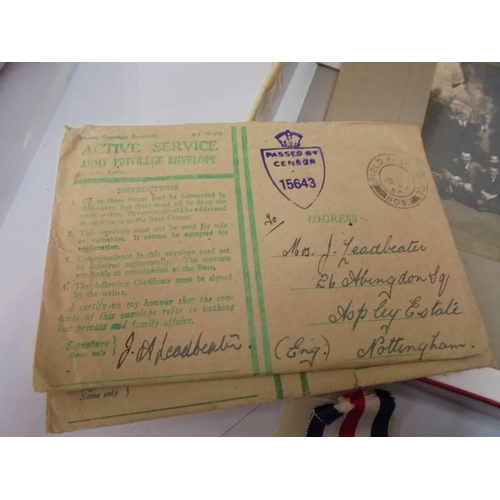 ACTIVE SERVICE
ARMY PRIVILEGE ENVELOPE
INSTRUCTIONS
PASSED BY
CENSOR
15643
FIELD
To
ADDRESS—
Mrs. J. Leadbeater
26 Abingdon Sq
Aspley Estate
(Eng) Nottingham.
1. in this cover, but they must all be from the same
2. This envelope must not be used for
It cannot be accepted for
registration.
3. Correspondence in this envelope need not
be censored regimentally. The contents
are liable to examination at the Base.
4. The following Certificate must be signed
by the writer:
I certify on my honour that the con-
tents of this envelope refer to nothing
but private and family affairs.
Signature
Name only } J. A Leadbeater.
Name only }